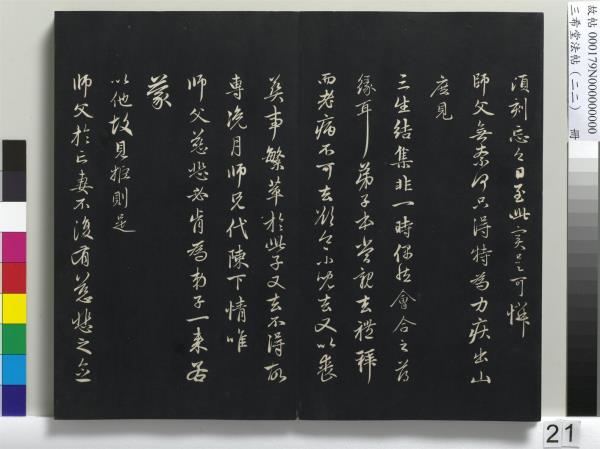 頃刻忘今日至此實是可憐
師父無奈何只得特為力疾出山
庶見
三生結集非一時偶然會合之薄
緣耳弟子本當親去禮拜
而老病不可去欲令小兒去又以喪
葬事繁萃於此子又去不得所
專浼月師兄代陳下情唯
師父慈悲必肯為弟子一來若
蒙
以他故見拒則是
師父於亡妻不復有慈悲之念
故帖 000179N000000000
三希堂法帖(二二) 冊
21